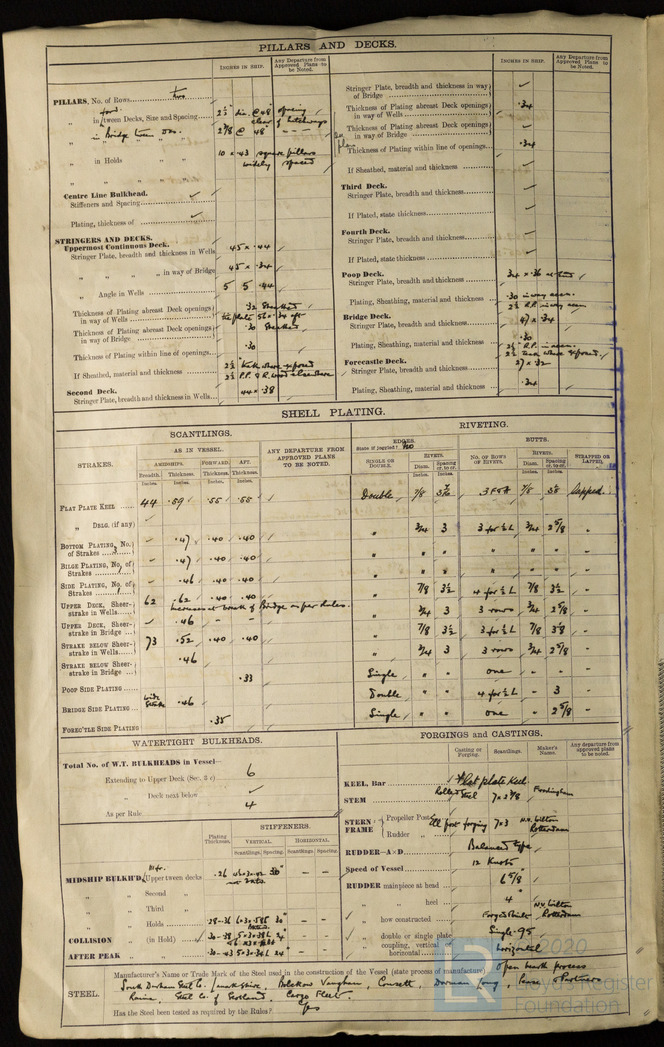 PILLARS AND DECKS.
INCHES IN SHIP.
Any Departure from Approved Plans to be Noted.
PILLARS, No. of Rows two
in 'tween Decks, Size and Spacing 2½ dia. @ 48 opening
clear of hatchways
in Bridge tween " " 2⅞ @ 48"
in Holds " " 10 x .43 square pillars
widely spaced
" " "
Centre Line Bulkhead.
Stiffeners and Spacing ✓
Plating, thickness of ✓
STRINGERS AND DECKS.
Uppermost Continuous Deck.
Stringer Plate, breadth and thickness in Wells 45 x .44
" " " " in way of Bridge 45 x .34
" Angle in Wells 5 5 .44
Thickness of Plating abreast Deck openings in way of Wells .32 Sheathed
Thickness of Plating abreast Deck openings in way of Bridge .30 Sheathed
Thickness of Plating within line of openings .30
If Sheathed, material and thickness 2½" teak where exposed
Second Deck.
Stringer Plate, breadth and thickness in Wells 44 x .38
INCHES IN SHIP.
Any Departure from Approved Plans to be Noted.
Stringer Plate, breadth and thickness in way of Bridge ✓
Thickness of Plating abreast Deck openings in way of Wells .34
Thickness of Plating abreast Deck openings in way of Bridge ✓
Thickness of Plating within line of openings .34
If Sheathed, material and thickness ✓
Third Deck.
Stringer Plate, breadth and thickness
If Plated, state thickness
Fourth Deck.
Stringer Plate, breadth and thickness
If Plated, state thickness
Poop Deck.
Stringer Plate, breadth and thickness 34 x .36
Plating, Sheathing, material and thickness .30 in way accn.
2½ P.P. in way accn
Bridge Deck.
Stringer Plate, breadth and thickness 47 x .34
Plating, Sheathing, material and thickness .30
2½" teak where exposed
Forecastle Deck.
Stringer Plate, breadth and thickness 27 x .32
Plating, Sheathing, material and thickness .34
SHELL PLATING.
SCANTLINGS.
RIVETING.
STRAKES.
AS IN VESSEL.
AMIDSHIPS. FORWARD. AFT.
Breadth. Thickness. Thickness. Thickness.
Inches. Inches. Inches. Inches.
ANY DEPARTURE FROM APPROVED PLANS TO BE NOTED.
EDGES.
State if joggled? No
SINGLE OR DOUBLE.
RIVETS.
Diam. Spacing cr. to cr.
Inches. Inches.
BUTTS.
No. OF ROWS OF RIVETS.
RIVETS.
Diam. Spacing cr. to cr.
Inches. Inches.
STRAPPED OR LAPPED.
FLAT PLATE KEEL 44 .59 .55 .55 Double 7/8 7/8 Lapped
" DBLG. (if any) ✓
BOTTOM PLATING, No. of Strakes 3 .47 .40 .40 " 3/4 3 3 for ½ L 3/4 2 5/8 "
BILGE PLATING, No. of Strakes 1 .47 .40 .40 " " " " " " "
SIDE PLATING, No. of Strakes 1 .46 .40 .40 " " " " " " "
UPPER DECK, Sheerstrake in Wells 62 .62 .40 .40 " 7/8 3½ 4 for ½ L 7/8 3½ "
Increased at break of Bridge as per Rules.
UPPER DECK, Sheerstrake in Bridge .46 " 3/4 3 3 rows 3/4 2 5/8 "
STRAKE BELOW Sheerstrake in Wells 73 .52 .40 .40 " 7/8 3½ 3 for ½ L 7/8 "
STRAKE BELOW Sheerstrake in Bridge .46 " 3/4 3 3 rows 3/4 2 5/8 "
POOP SIDE PLATING .33 Single " " one " " "
BRIDGE SIDE PLATING wide strake .46 Double " " 4 for ½ L - 3 "
FOREC'TLE SIDE PLATING .35 Single " " one " 2 5/8 "
WATERTIGHT BULKHEADS.
Total No. of W.T. BULKHEADS in Vessel—
Extending to Upper Deck (Sec. 3 c) 6
" Deck next below ✓
As per Rule 4
STIFFENERS.
Plating Thickness.
VERTICAL. HORIZONTAL.
Scantlings. Spacing. Scantlings. Spacing.
MIDSHIP BULKH'D, Upper tween decks .26 30"
" " Second "
" " Third "
" " Holds .28-.36 30"
COLLISION " (in Hold) .30-.38 24"
AFTER PEAK " " .30-.43 24"
FORGINGS and CASTINGS.
Casting or Forging.
Scantlings.
Maker's Names.
Any departure from approved plans to be noted.
KEEL, Bar Flat plate keel
STEM Rolled Steel 7 x 2 7/8 Frodingham
STERN FRAME Propeller Post
Rudder "
forging 7 x 3 N.V. Wilton Rotterdam
RUDDER—A x D Balanced type
Speed of Vessel 12 Knots
RUDDER mainpiece at head 6 5/8
" " heel 4"
" how constructed Forged & built N.V. Wilton Rotterdam
" double or single plate Single .95
" coupling, vertical or horizontal horizontal
STEEL.
Manufacturer's Name or Trade Mark of the Steel used in the construction of the Vessel (state process of manufacture) Open hearth process
South Durham Steel Co. Lanarkshire, Bolckow Vaughan, Consett, Dorman Long, Pease & Partners
Steel Co. of Scotland, Cargo Fleet
Has the Steel been tested as required by the Rules? Yes
© 2020
LR
Lloyd's Register
Foundation